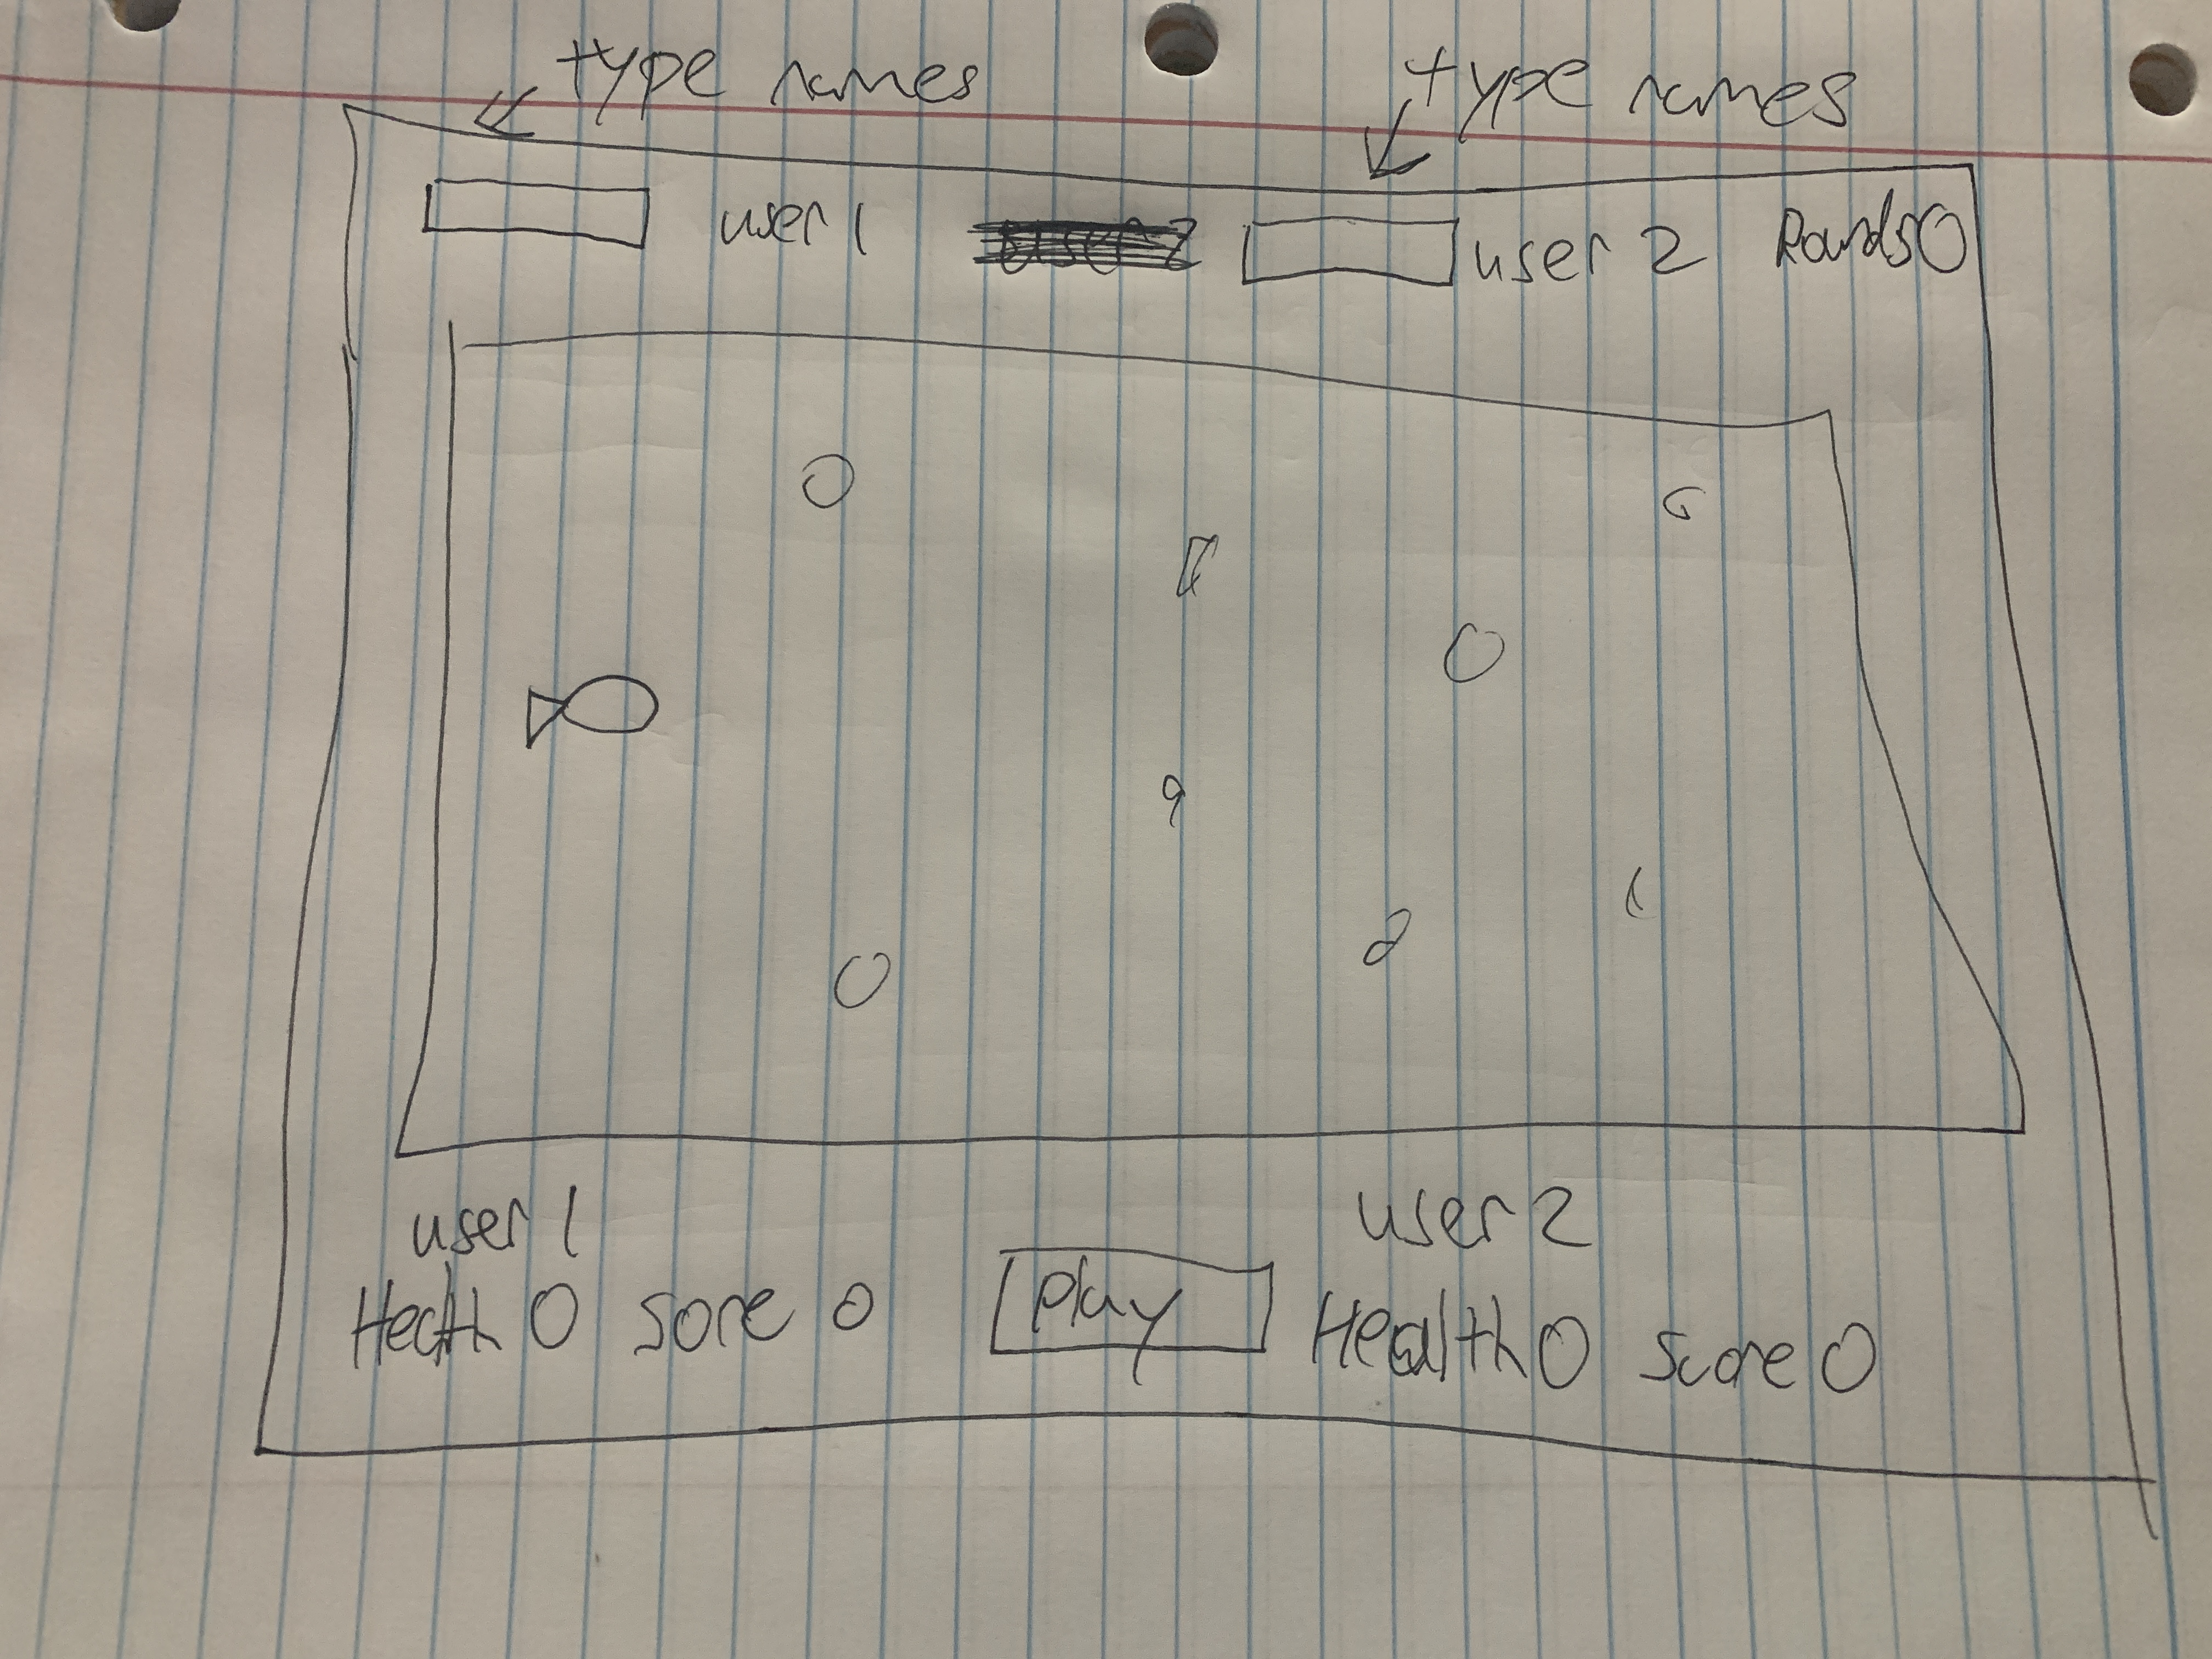 type names type names
user 1 user 2 Rounds 0
user 1 user 2
Health 0 sore 0 play Health 0 score 0